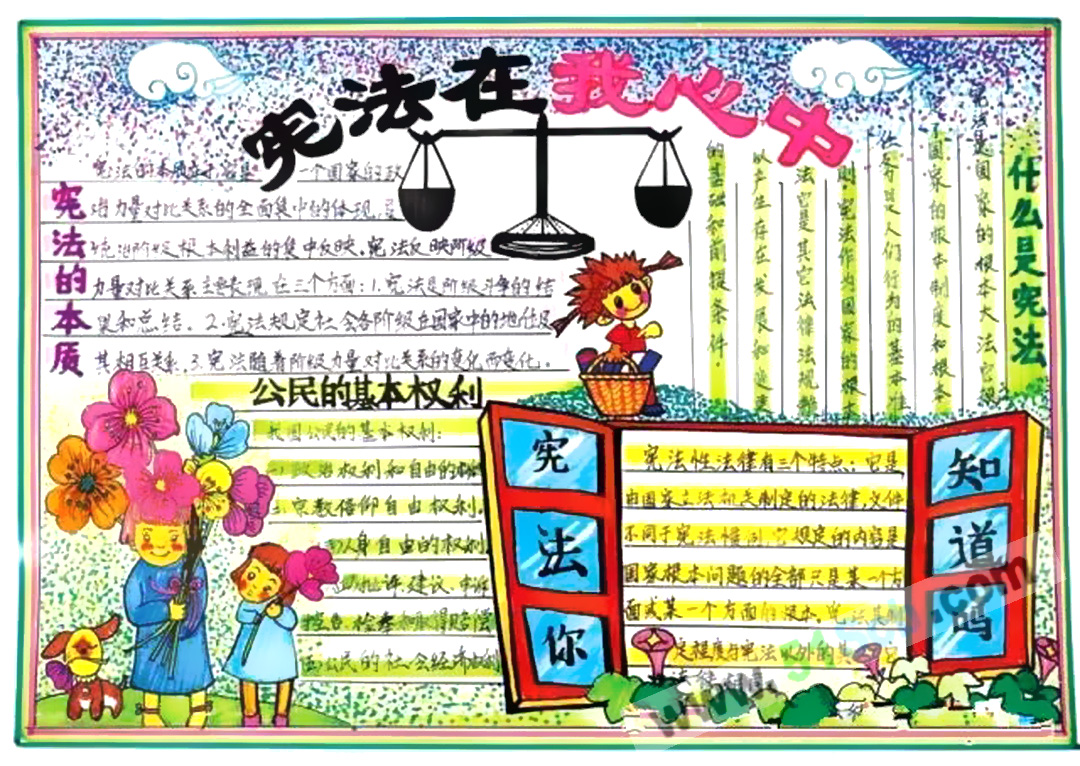 宪法在我心中
宪法的本质
宪法的本质在于它是一个国家的政
治力量对比关系的全面集中的体现,是
统治阶级根本利益的集中反映。宪法反映阶级
力量对比关系主要表现在三个方面:1.宪法是阶级斗争的结
果和总结。2.宪法规定社会各阶级在国家中的地位及
其相互关系。3.宪法随着阶级力量对比关系的变化而变化。
什么是宪法
宪法是国家的根本大法它
了国家的根本制度和根本
任务是人们行为的基本准
则宪法作为国家的根本
法它是其它法律法规赖
以产生存在发展和变更
的基础和前提条件。
公民的基本权利
我国公民的基本权利:
政治权利和自由的权利
宗教信仰自由权利
人身自由的权利
批评建议申诉
控告检举和取得赔偿
公民的社会经济权利
宪法你
知道吗
宪法性法律有三个特点:它是
由国家立法机关制定的法律文件
不同于宪法惯例它规定的内容是
国家根本问题的全部只是某一个方
面或某一个方面的根本宪法
定程度与宪法以外的其它
法律